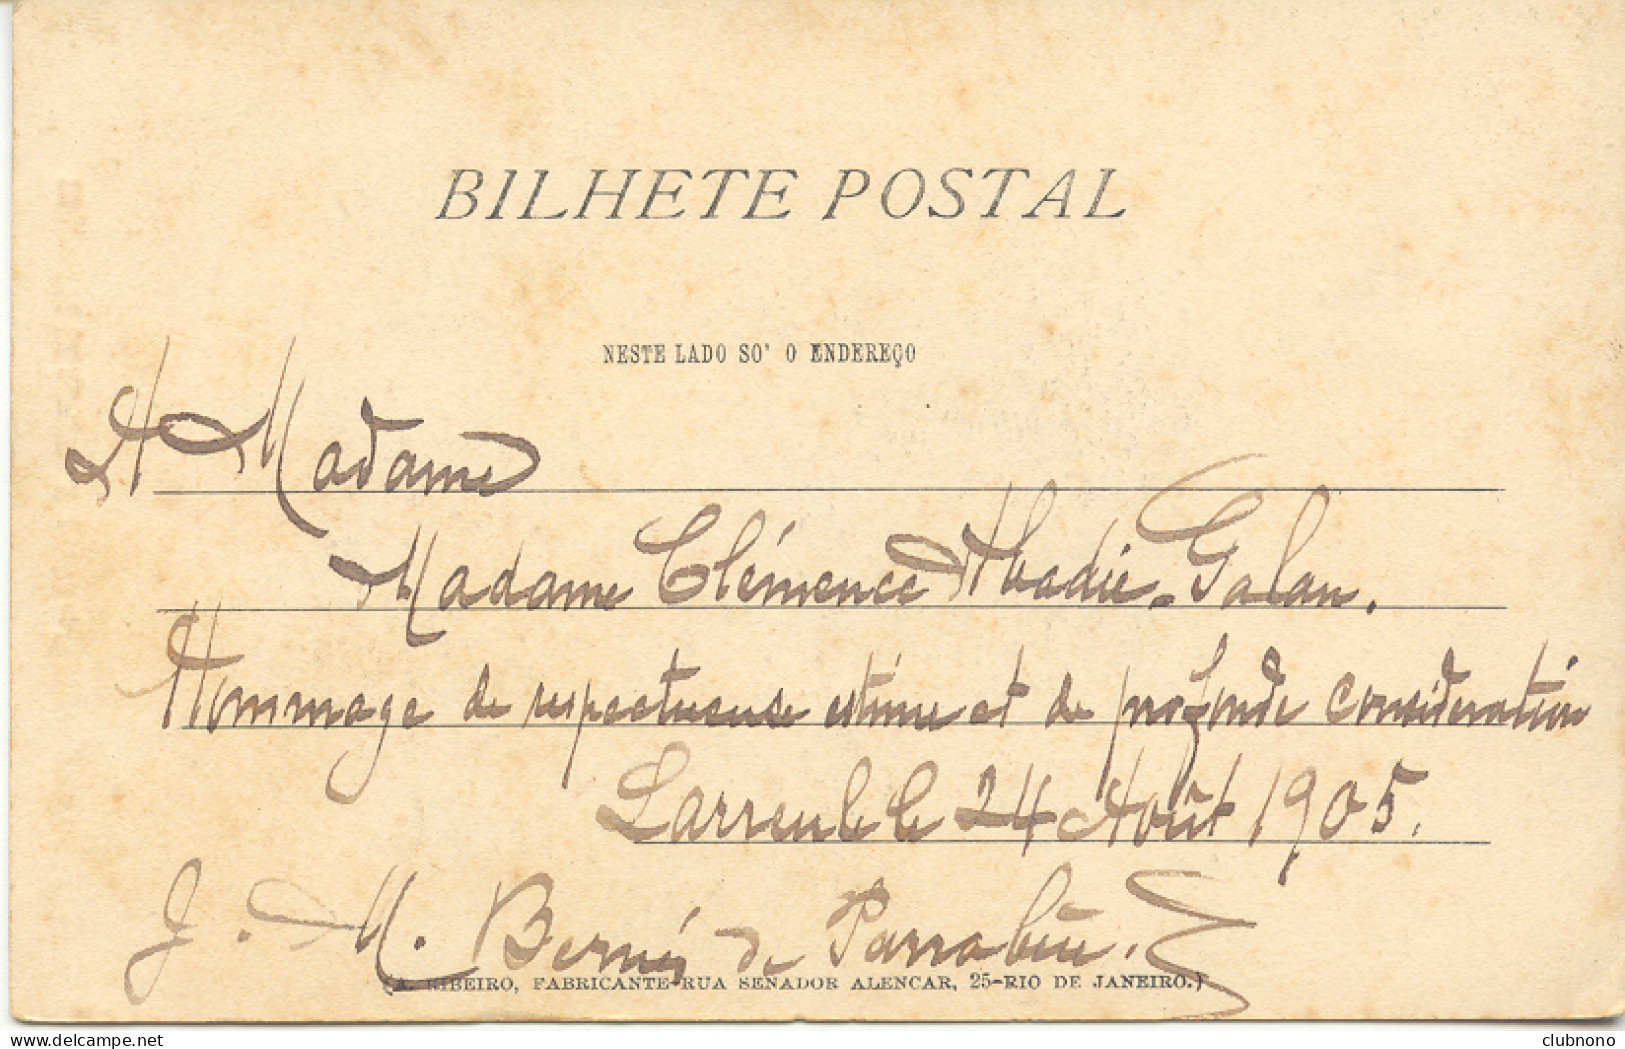 BILHETE POSTAL
NESTE LADO SO' O ENDEREÇO
A Madame
Madame Clémence Abadie-Galan.
Hommage de respectueuse estime et de profonde considération
Larreule le 24 Août 1905.
J. M. Bernés de Parrabiu.
(A. RIBEIRO, FABRICANTE-RUA SENADOR ALENCAR, 25-RIO DE JANEIRO.)
delcampe.net
clubnono